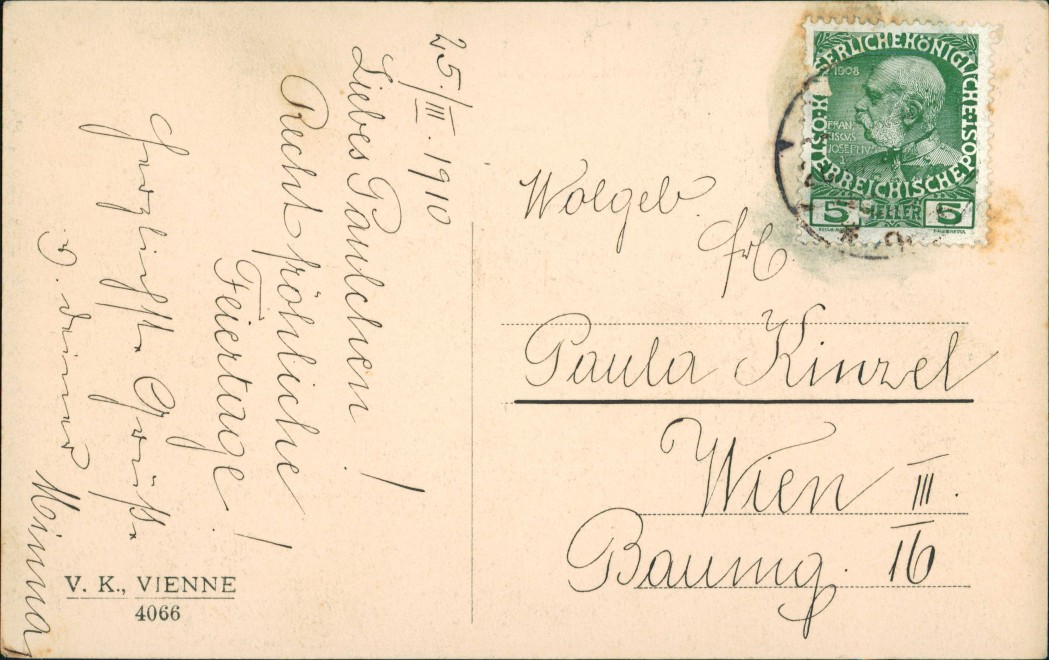 25./III. 1910
Liebes Paulchen!
Recht fröhliche
Feiertage!
Herzlichste Grüße
v. deiner Minna
V. K., VIENNE
4066
KAISERLICHE KÖNIGLICHE ÖSTERREICHISCHE POST
1908
FRAN
CISCVS
JOSEPHVS
I
5 HELLER 5
Wolgeb.
Frl.
Paula Kinzel
Wien III.
Baumg. 16